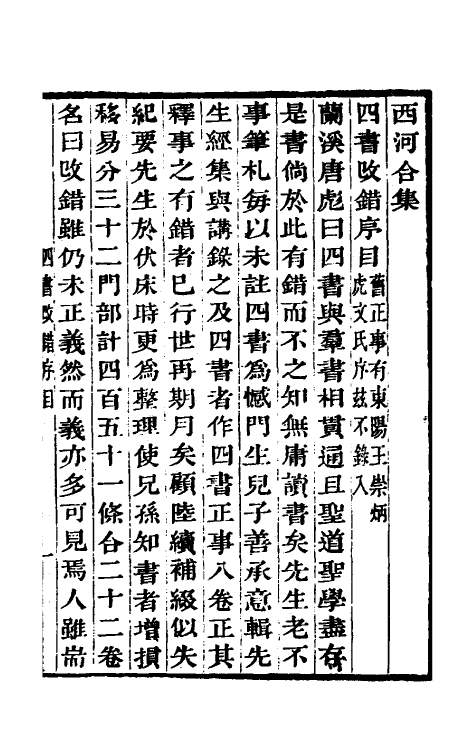 西河合集
四書改錯序目舊正事有東陽王崇炳
虎文氏序玆不錄入
蘭溪唐彪曰四書與羣書相貫通且聖道聖學盡存
是書倘於此有錯而不之知無庸讀書矣先生老不
事筆札每以未註四書為憾門生兒子善承意輯先
生經集與講錄之及四書者作四書正事八卷正其
釋事之有錯者已行世再期月矣顧陸續補綴似失
紀要先生於伏床時更為整理使兄孫知書者增損
移易分三十二門部計四百五十一條合二十二卷
名曰改錯雖仍未正義然而義亦多可見焉人雖耑
四書改錯序目
一